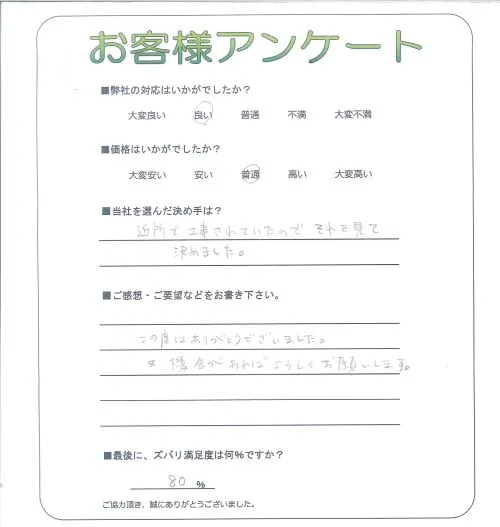 お客様アンケート
■弊社の対応はいかがでしたか？
大変良い 良い 普通 不満 大変不満
■価格はいかがでしたか？
大変安い 安い 普通 高い 大変高い
■当社を選んだ決め手は？
近所で工事されていたので それを見て
決めました。
■ご感想・ご要望などをお書き下さい。
この度はありがとうございました。
又 機会があればよろしくお願いします。
■最後に、ズバリ満足度は何％ですか？
80 ％
ご協力頂き、誠にありがとうございました。